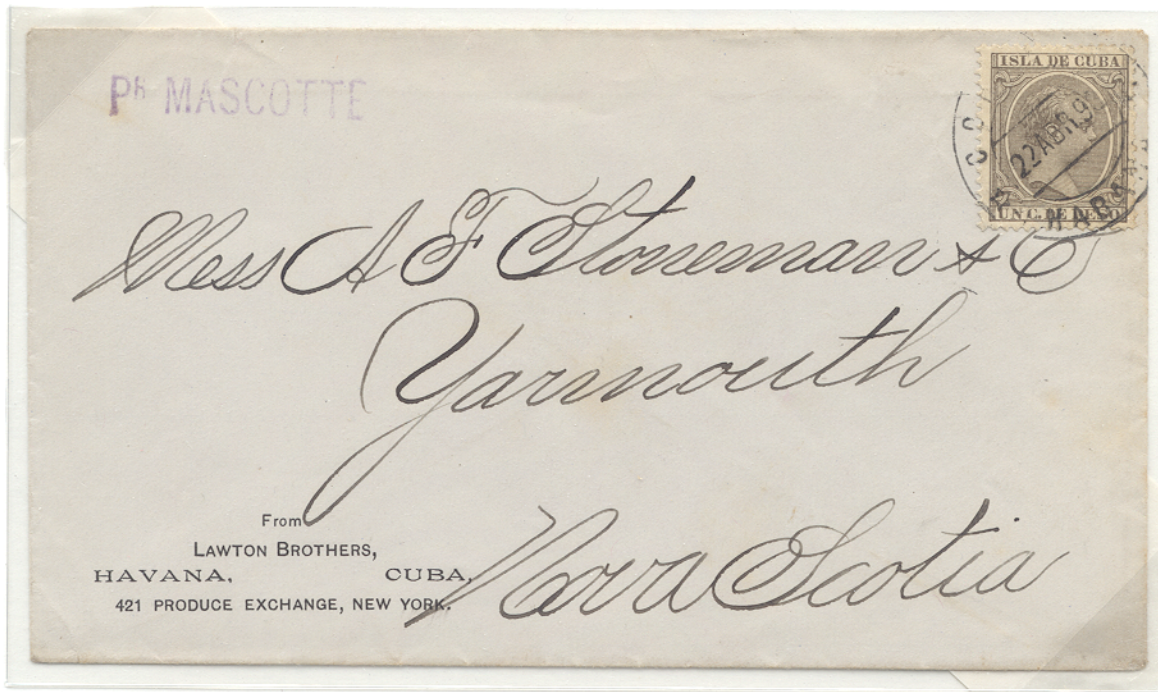 Pr MASCOTTE
ISLA DE CUBA
22 ABR 9
UN C. DE PESO
HABANA
Mess A F Stoneman & Co
Yarmouth
Nova Scotia
From
LAWTON BROTHERS,
HAVANA, CUBA,
421 PRODUCE EXCHANGE, NEW YORK.